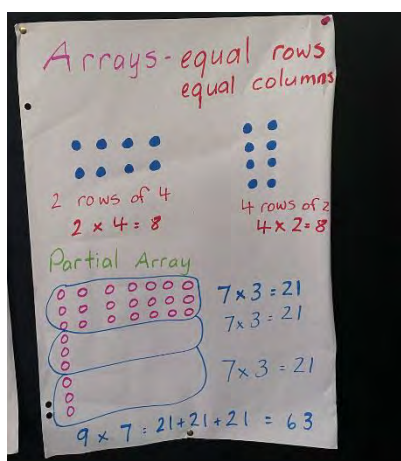 Arrays - equal rows
equal columns
2 rows of 4
2 x 4 = 8
4 rows of 2
4 x 2 = 8
Partial Array
7 x 3 = 21
7 x 3 = 21
7 x 3 = 21
9 x 7 = 21 + 21 + 21 = 63